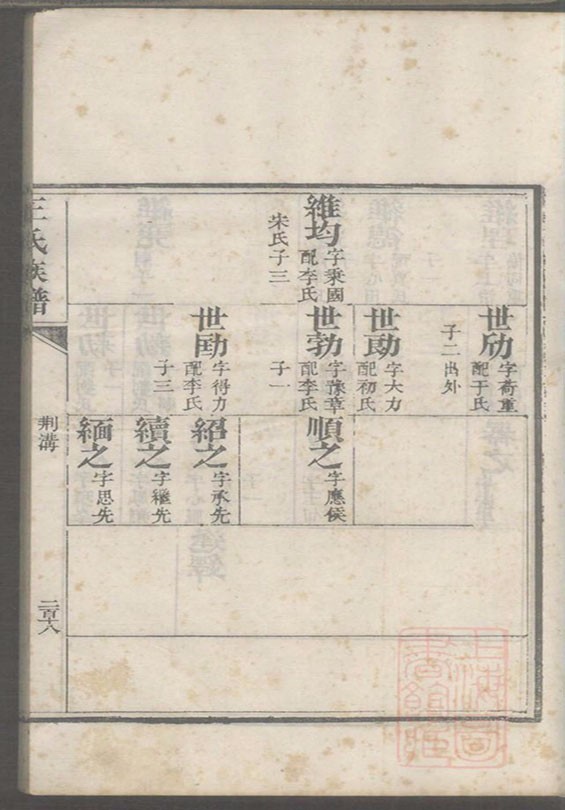 維均
字秉國
配李氏
朱氏子三
世劤
字荷重
配于氏
子二出外
世勆
字大力
配初氏
世勃
字豫章
配李氏
子一
世勛
字得力
配李氏
子三
順之
字應侯
紹之
字承先
續之
字繼先
緬之
字思先
王氏族譜
荆溝
上海圖書館藏